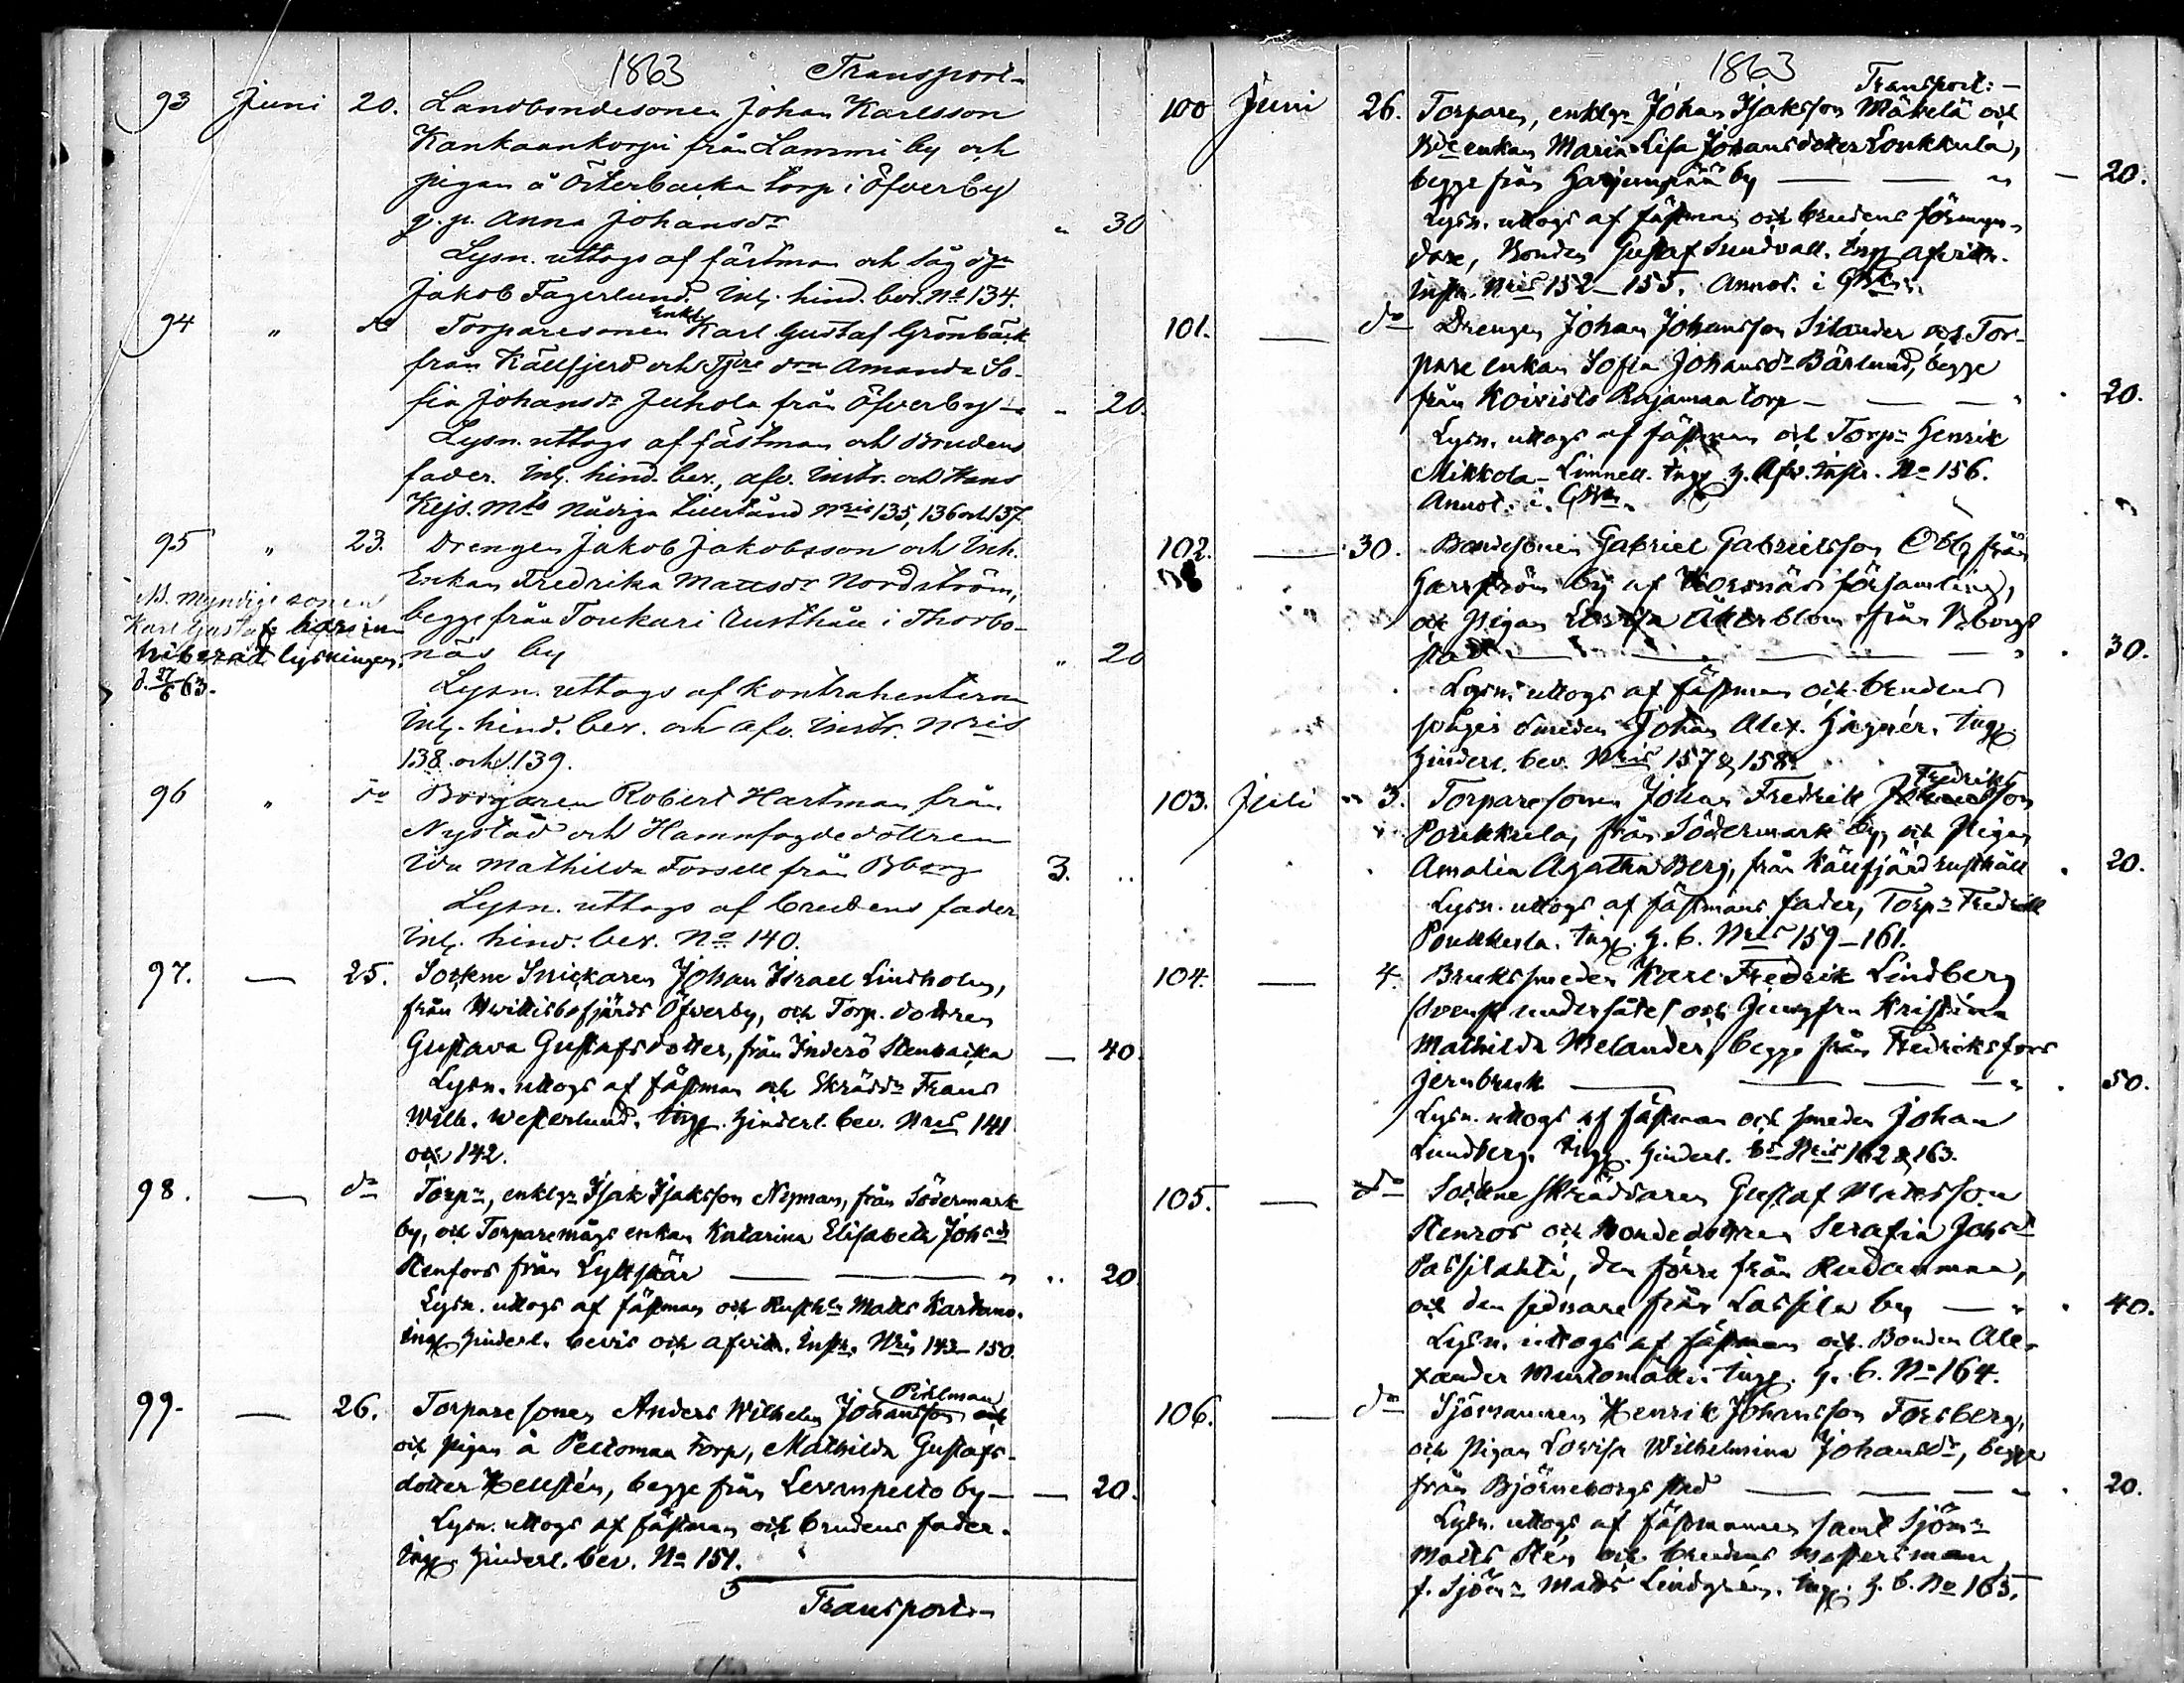 1863 Transport
93 Juni 20. Landbondesonen Johan Karlsson
Kankaankorpi från Lammi by och
pigan å Österbacka torp i Öfverby
g. p. Anna Johansdr " 30
Lysn. uttogs af fästman och
Jakob Fagerlund. Inl. hind. bev. No 134.
94 " do Torparesonen Enkl. Karl Gustaf Grönbäck
från Källfjerd och Amanda So-
fia Johansdr Juhola från Öfverby - 20
Lysn. uttogs af fästman och Brudens
fader. Inl. hind. bev., afv. Instr. och Hans
Kejs. Mts Nådiga tillstånd Nris 135, 136 och 137.
95 " 23. Drengen Jakob Jakobsson och Inh.
Enkan Fredrika Mattsdr Nordström,
begge från Toukari Rusthåll i Thorbo-
näs by " 20
NB. Myndige sonen
Karl Gustaf
lysningen
d. 27/6 63.
Lysn. uttogs af kontrahenterna
Inl. hind. bev. och afv. Instr. Nris
138 och 139.
96 " do Borgaren Robert Hartman från
Nystad och Hamnfogdedottren
Ida Mathilda Forsell från Bborg 3. ..
Lysn. uttogs af brudens fader
Inl. hind. bev. No 140.
97. — 25. Sockne Snickaren Johan Israel Lindholm,
från Hvittisbofjärds Öfverby, och Torp. dottren
Gustava Gustafsdotter, från Inderö Stenbacka — 40
Lysn. uttogs af fästman och Skräddr Frans
Wilh. Westerlund. Ingf. Hinderl. bev. Nris 141
och 142.
98. — do Torpr, enklgn Isak Isaksson Nyman, från Södermark
by, och Torparemågs enkan Katarina Elisabeth Johsdr
Stenfors från Lyttskär — — " .. 20
Lysn. uttogs af fästman och Rusthlr Matts Kartano.
Ingf Hinderl. bevis och afvittr. Instr. Nris 143–150.
99. — 26. Torparesonen Anders Wilhelm Johansson Pihlman
och pigan å Peltomaa torp, Mathilda Gustafs-
dotter Hellstén, begge från Levanpelto by — — 20.
Lysn. uttogs af fästman och brudens fader.
Ingf Hinderl. bev. No 151.
Transport
1863
Transport: —
100 Juni 26. Torparen, enklgn Johan Isaksson Mäkelä och
Bde enkan Maria Lisa Johansdoter Loukkula,
begge från Harjunpää by — — " — 20.
Lysn. uttogs af fästman och brudens förmyn-
dare, Bonden Gustaf Sundvall. Ingf afvittr.
Instr. Nris 152–155. Annot. i
101. — do Drengen Johan Johansson Silander och Tor-
pare enkan Sofia Johansdr Bärlund, begge
från Koivisto Rajamaa torp — — — " . 20.
Lysn. uttogs af fästman och Torpr Henrik
Mikkola-Limnell. Ingf. H. Afv. Instr. No 156.
Annot. i
102. — 30. Bondesonen Gabriel Gabrielsson från
Harrström by af Korsnäs församling,
och pigan Lovisa Åkerblom från Bborgs
stad — — — — " . 30.
Lysn. uttogs af fästman och brudens
smeden Johan Alex. Hagnér. Ingf
Hinderl. bev. Nris 157 & 158.
103. Juli 3. Torparesonen Johan Fredrik Fredriksson
Poukkula, från Södermark by, och Pigan
Amalia Agatha Berg, från Källfjärd rusthåll . 20.
Lysn. uttogs af fästmans fader, Torpr Fredrik
Poukkula. Ingf. H. b. Nris 159–161.
104. — 4. Bruksmeden Karl Fredrik Lindberg
(svensk undersåte) och Jungfru Kristina
Mathilda Melander, begge från Fredriksfors
jernbruk — — — — " . 50.
Lysn. uttogs af fästman och smeden Johan
Lundberg. Ingf. Hinderl. bs Nris 162 & 163.
105. — do Sockneskräddaren Gustaf Mattsson
Stenros och Bondedottren Serafia Johsdr
Passilahti, den förre från Rudanmaa,
och den sednare från Lassila by — " . 40.
Lysn. uttogs af fästman och Bonden Ale-
xander Murtomäki. Ingf. H. b. No 164.
106. — do Sjömannen Henrik Johansson Forsberg,
och pigan Lovisa Wilhelmina Johansdr, begge
från Björneborgs stad — — — " . 20.
Lysn. uttogs af fästmannen samt Sjömn
Matts Stén och brudens
f. Sjömn Matts Lindgrén. Ingf. H. b. No 165.